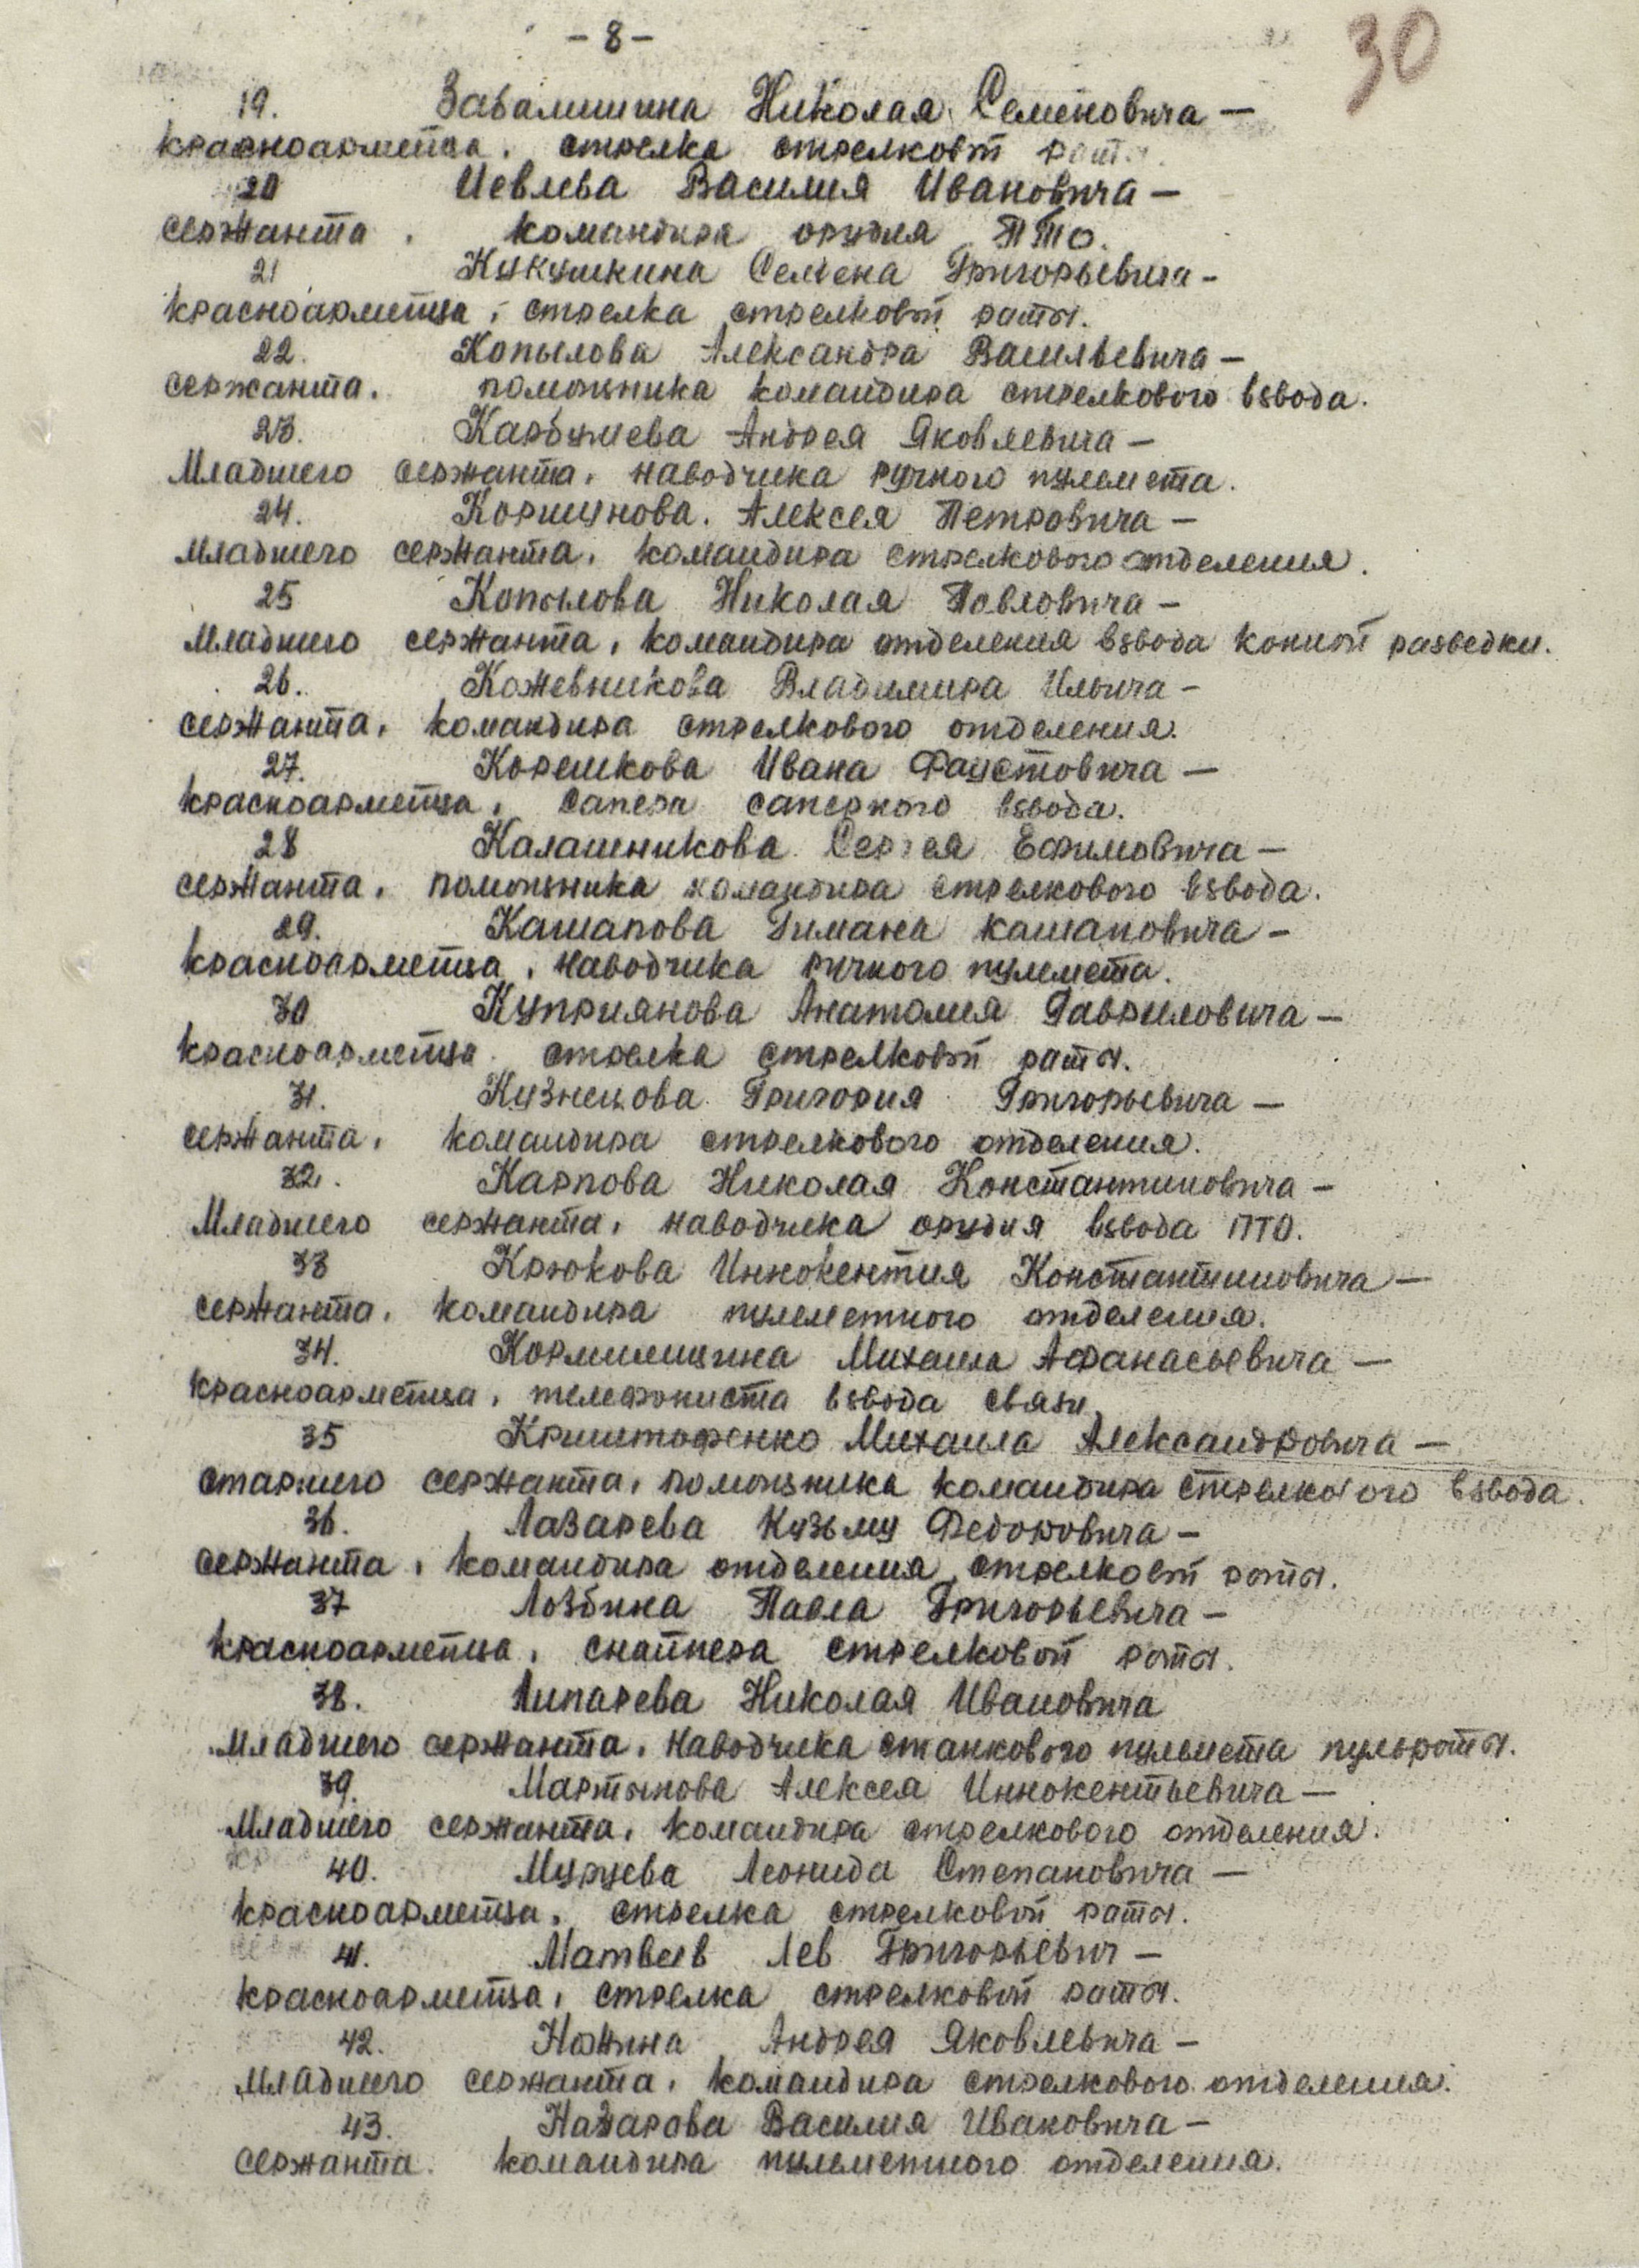 - 8 -
30
19. Завалишина Николая Семеновича —
красноармейца, стрелка стрелковой роты.
20 Иевлева Василия Ивановича —
сержанта, командира орудия ПТО.
21 Кукушкина Семена Григорьевича -
красноармейца, стрелка стрелковой роты.
22. Копылова Александра Васильевича —
сержанта, помощника командира стрелкового взвода.
23. Карбушева Андрея Яковлевича —
Младшего сержанта, наводчика ручного пулемета.
24. Коршунова Алексея Петровича —
младшего сержанта, командира стрелкового отделения.
25 Копылова Николая Павловича —
Младшего сержанта, командира отделения взвода конной разведки.
26. Кожевникова Владимира Ильича -
сержанта, командира стрелкового отделения.
27. Корешкова Ивана Фаустовича —
красноармейца, сапера саперного взвода.
28 Калашникова Сергея Ефимовича —
сержанта, помощника командира стрелкового взвода.
29. Кашапова Гимана Кашаповича -
красноармейца, наводчика ручного пулемета.
30 Куприянова Анатолия Гавриловича —
красноармейца стрелка стрелковой роты.
31. Кузнецова Григория Григорьевича —
сержанта, командира стрелкового отделения.
32. Карпова Николая Константиновича —
Младшего сержанта, наводчика орудия взвода ПТО.
33 Крюкова Иннокентия Константиновича —
сержанта, командира пулеметного отделения.
34. Кормилицина Михаила Афанасьевича —
красноармейца, телефониста взвода связи.
35 Криштофенко Михаила Александровича —
старшего сержанта, помощника командира стрелкового взвода.
36. Лазарева Кузьму Федоровича —
сержанта, командира отделения стрелковой роты.
37 Лозбина Павла Григорьевича —
красноармейца, снайпера стрелковой роты.
38. Липарева Николая Ивановича
младшего сержанта, наводчика станкового пулемета пульроты.
39. Мартынова Алексея Иннокентьевича —
Младшего сержанта, командира стрелкового отделения.
40. Муруева Леонида Степановича —
красноармейца, стрелка стрелковой роты.
41. Матвеев Лев Григорьевич —
красноармейца, стрелка стрелковой роты.
42. Ножина Андрея Яковлевича —
младшего сержанта, командира стрелкового отделения.
43. Назарова Василия Ивановича —
сержанта. командира пулеметного отделения.